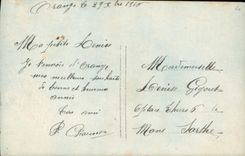 Orange le 29 Xbre 1915
Ma petite Denise
Je t'envoie d'Orange
mes meilleurs souhaits
de bonne et heureuse
année
Ton ami
Mademoiselle
Denise
6 place Thiers 6
Mans Sarthe